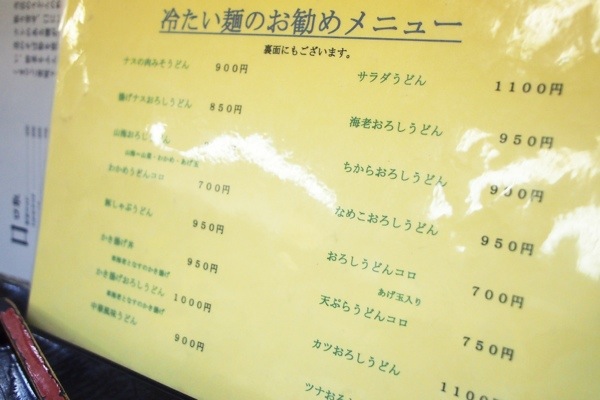 冷たい麺のお勧めメニュー
裏面にもございます。
ナスの肉みそうどん 900円
揚げナスおろしうどん 850円
山海おろし
山海=山菜・わかめ・あげ玉
わかめうどんコロ 700円
豚しゃぶうどん 950円
かき揚げ丼 950円
かき揚げおろしうどん 1000円
中華風味うどん 900円
サラダうどん 1100円
海老おろしうどん 950円
ちからおろしうどん 900円
なめこおろしうどん 950円
おろしうどんコロ 700円
あげ玉入り
天ぷらうどんコロ 750円
カツおろしうどん 1100
ツナおろし